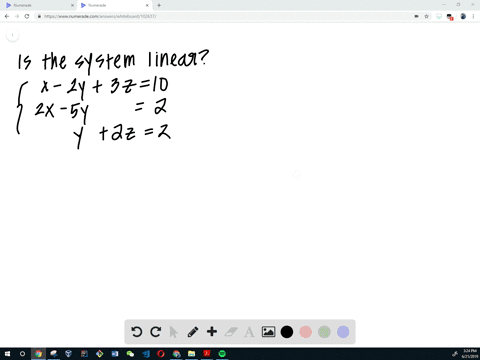 Numerade
Numerade
https://www.numerade.com/answers/whiteboard/
Is the system linear?
x - 2y + 3z = 10
2x - 5y = 2
y + 2z = 2
3:24 PM
6/21/2019